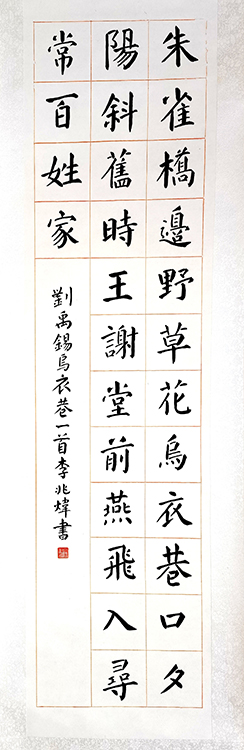 朱雀橋邊野草花烏衣巷口夕
陽斜舊時王謝堂前燕飛入尋
常百姓家
劉禹錫烏衣巷一首李兆煒書